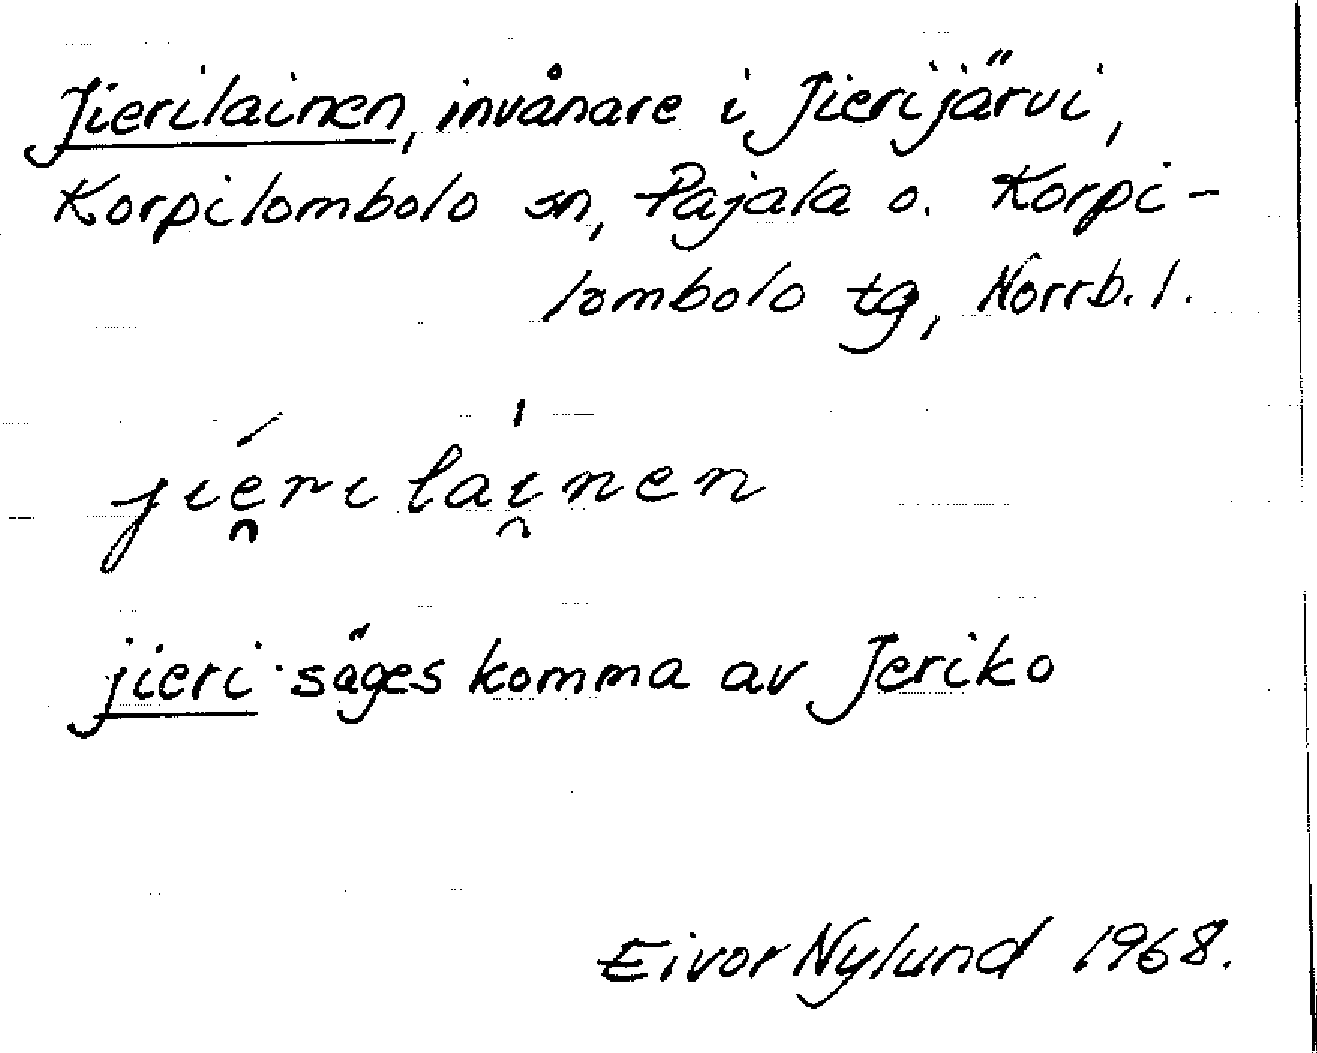 Jierilainen, invånare i Jierijärvi,
Korpilombolo sn, Pajala o. Korpi-
lombolo tg, Norrb. l.
jie̯ri lai̯nen
jieri säges komma av Jeriko
Eivor Nylund 1968.